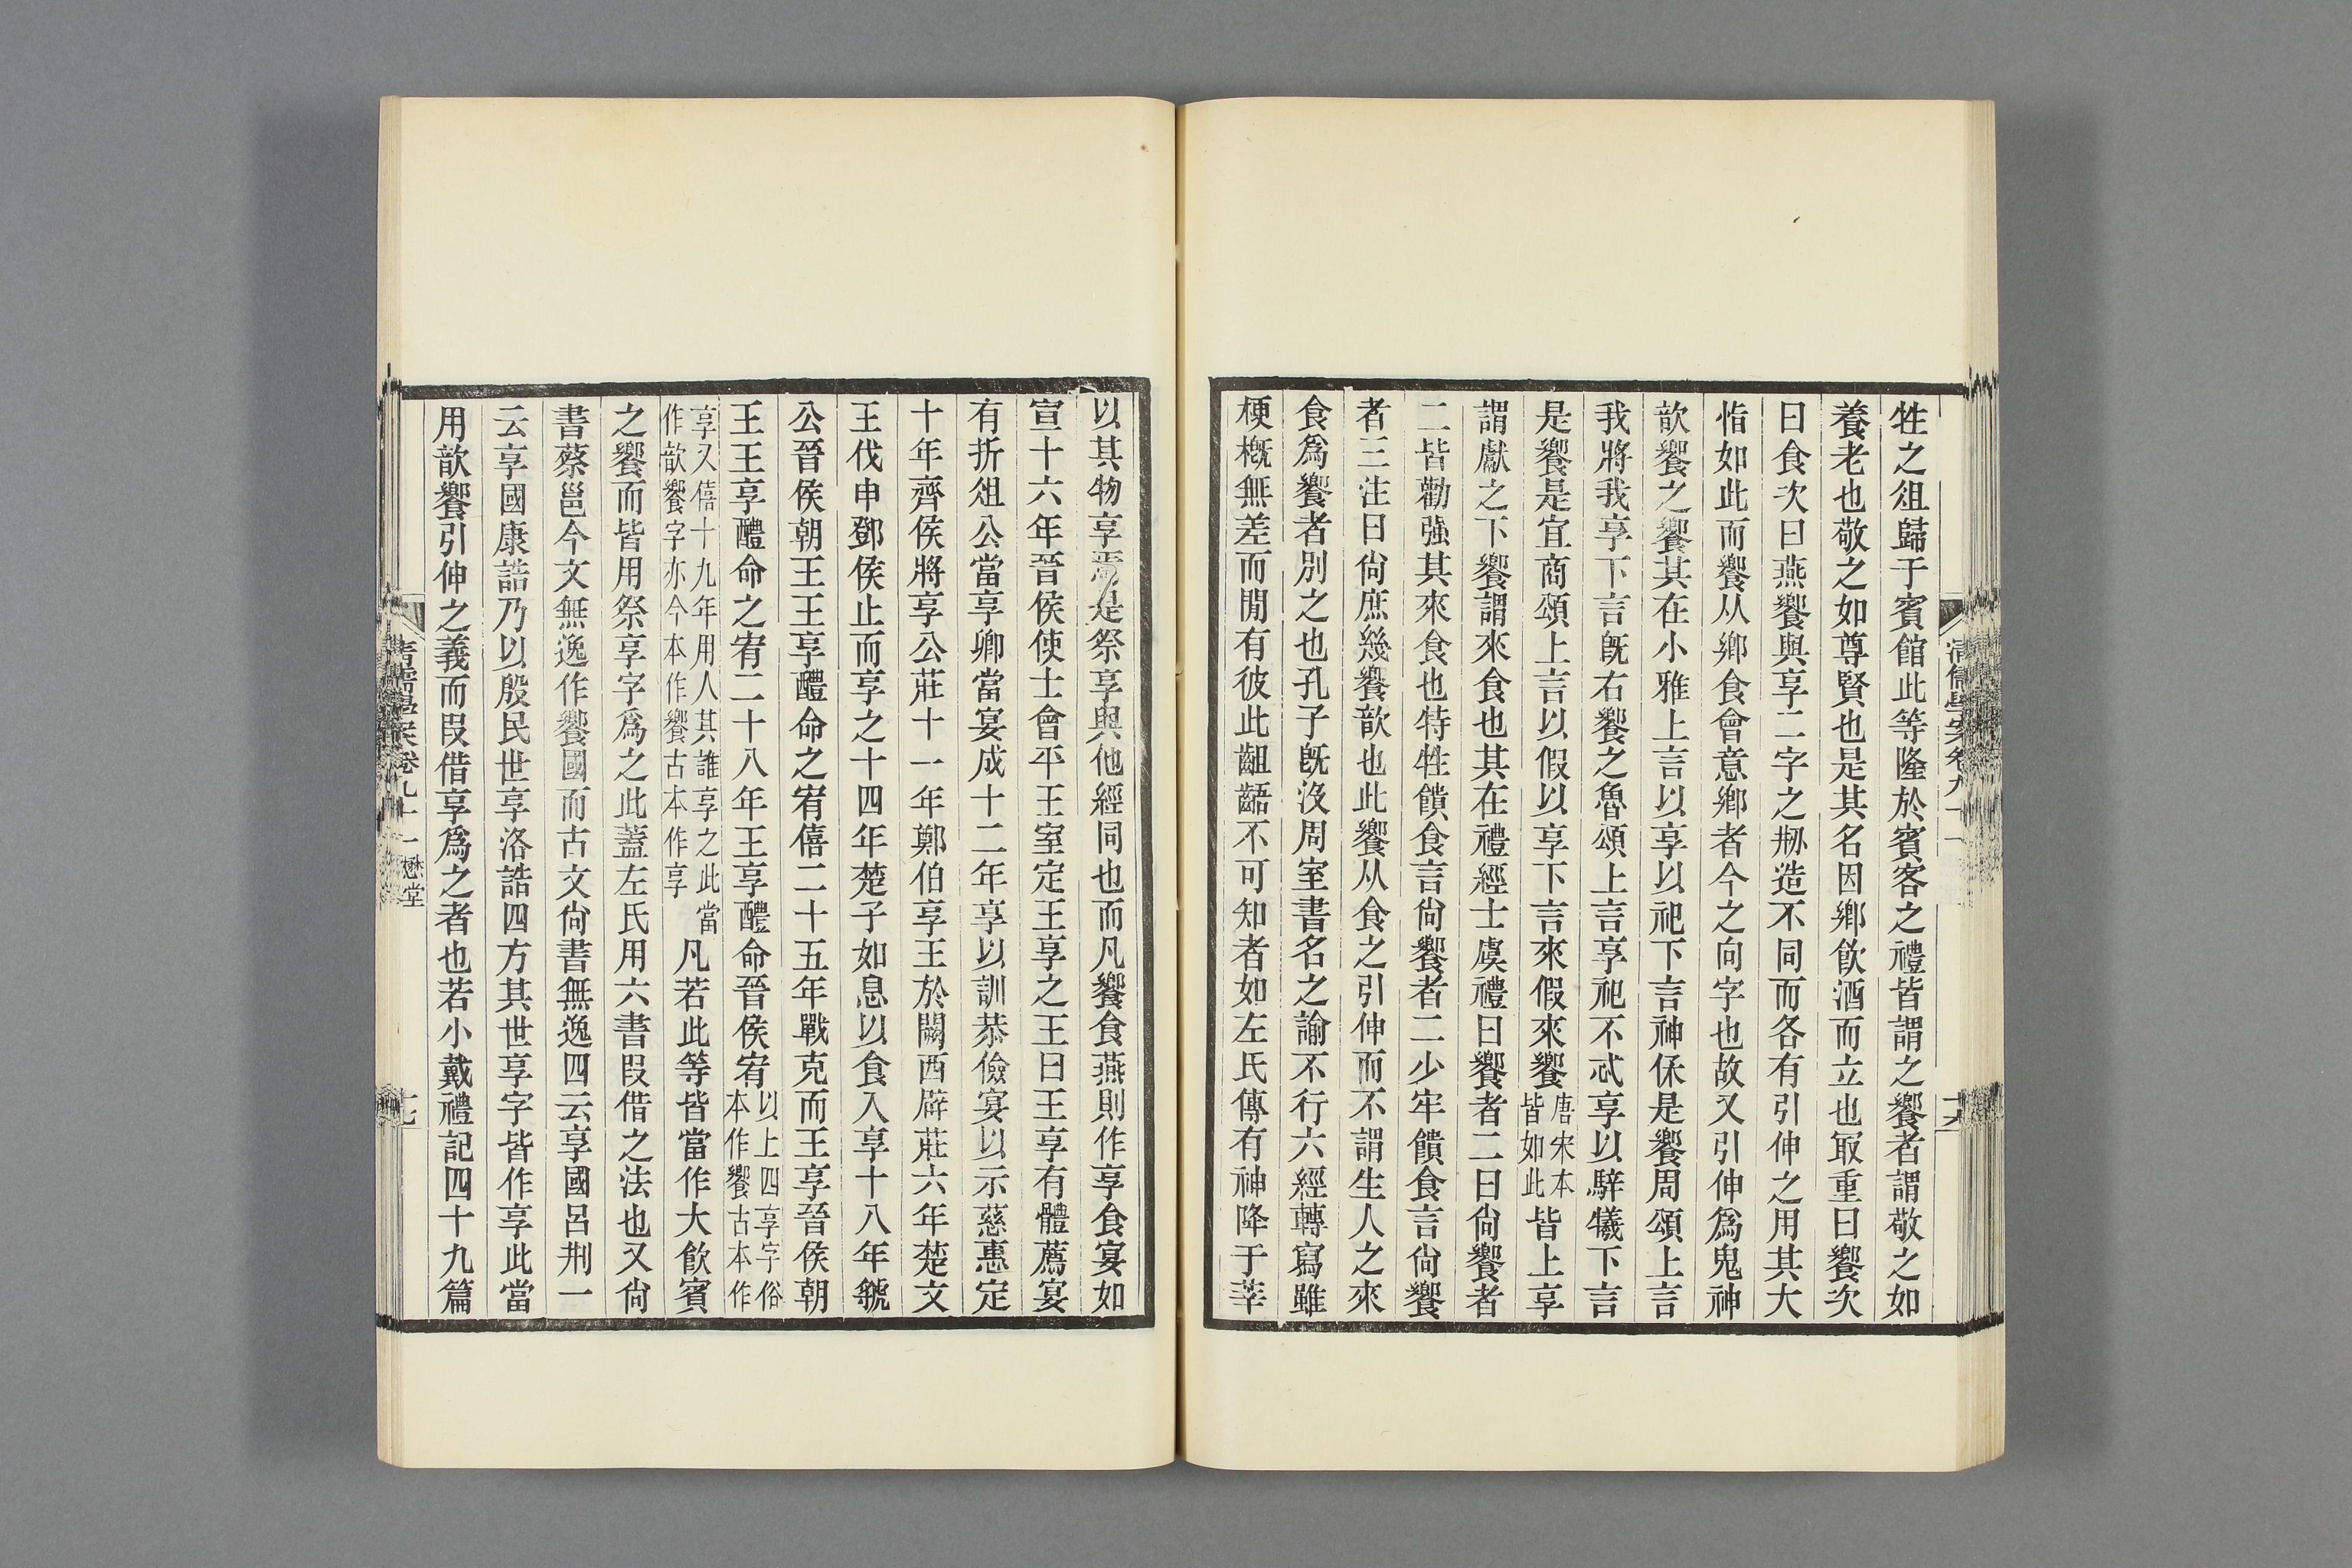 牲之俎歸于賓館此等隆於賓客之禮皆謂之饗者謂敬之如
養老也敬之如尊賢也是其名因鄉飮酒而立也㝡重曰饗次
曰食次曰燕饗與享二字之刱造不同而各有引伸之用其大
恉如此而饗从鄉食會意鄉者今之向字也故又引伸爲鬼神
歆饗之饗其在小雅上言以享以祀下言神保是饗周頌上言
我將我享下言旣右饗之魯頌上言享祀不忒享以騂犧下言
是饗是宜商頌上言以假以享下言來假來饗唐宋本皆如此皆上享
謂獻之下饗謂來食也其在禮經士虞禮曰饗者二曰尙饗者
二皆勸强其來食也特牲饋食言尙饗者二少牢饋食言尙饗
者三注曰尙庶幾饗歆也此饗从食之引伸而不謂生人之來
食爲饗者別之也孔子旣沒周室書名之諭不行六經轉寫雖
梗槪無差而閒有彼此齟齬不可知者如左氏傳有神降于莘
以其物享焉是祭享與他經同也而凡饗食燕則作享食宴如
宣十六年晉侯使士會平王室定王享之王曰王享有體薦宴
有折俎公當享卿當宴成十二年享以訓恭儉宴以示慈惠定
十年齊侯將享公莊十一年鄭伯享王於闕西辟莊六年楚文
王伐申鄧侯止而享之十四年楚子如息以食入享十八年虢
公晉侯朝王王享醴命之宥僖二十五年戰克而王享晉侯朝
王王享醴命之宥二十八年王享醴命晉侯宥以上四享字俗本作饗古本作
享又僖十九年用人其誰享之此當作歆饗字亦今本作饗古本作享凡若此等皆當作大飮賓
之饗而皆用祭享字爲之此蓋左氏用六書叚借之法也又尙
書蔡邕今文無逸作饗國而古文尙書無逸四云享國呂刑一
云享國康誥乃以殷民世享洛誥四方其世享字皆作享此當
用歆饗引伸之義而叚借享爲之者也若小戴禮記四十九篇
清儒學案卷九十一 懋堂
十七